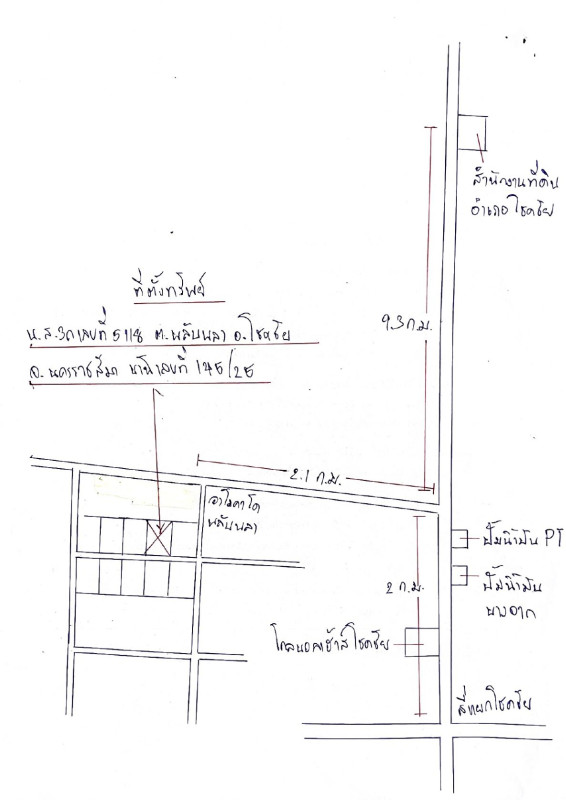 สำนักงานที่ดิน
อำเภอโชคชัย
ที่ตั้งทรัพย์
น.ส.3ก เลขที่ 5118 ต.พลับพลา อ.โชคชัย
จ.นครราชสีมา บ้านเลขที่ 145/25
9.3 ก.ม.
2.1 ก.ม.
พลับพลา
ปั๊มน้ำมัน PT
ปั๊มน้ำมัน
บางจาก
2 ก.ม.
โกลบอลเฮ้าส์โชคชัย
สี่แยกโชคชัย